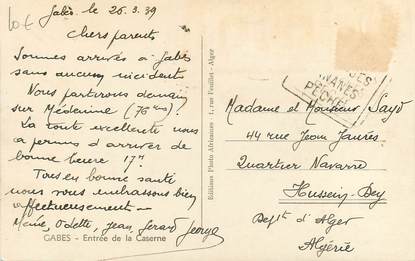 Gabès le 26.3.39
Chers parents
Sommes arrivés à Gabès
sans aucun incident.
Nous partirons demain
sur Médenine (76 kms)
La route excellente nous
a permis d'arriver de
bonne heure 17h.
Tous en bonne santé
nous vous embrassons bien
affectueusement —
Odette, Jean, Gérard George
GABES - Entrée de la Caserne
Editions Photo Africaines - 1, rue Feuillet - Alger
PÊCHE
Madame et Monsieur Sayd
44 rue Jean Jaurès
Quartier Navarre
Hussein-Dey
Dept d'Alger
Algérie